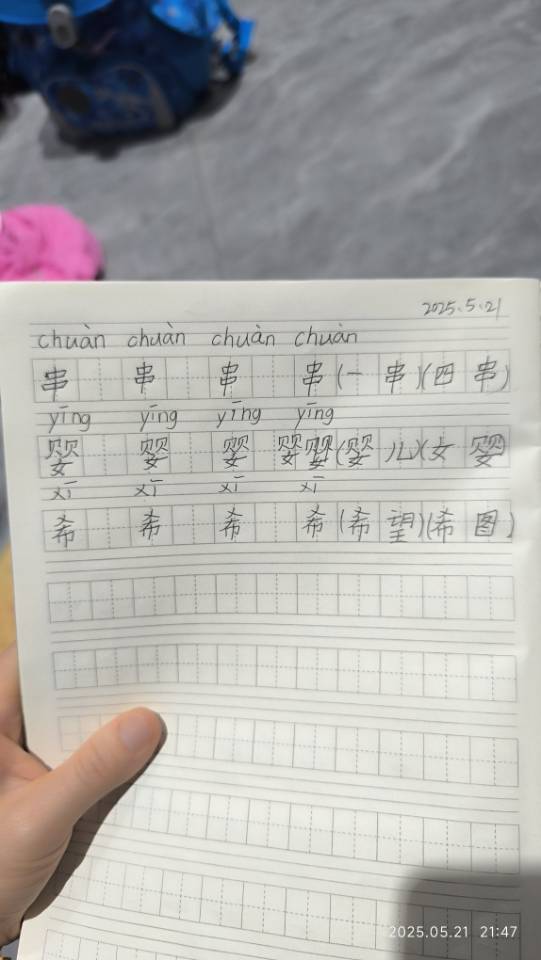 2025.5.21
chuàn chuàn chuàn chuàn
串 串 串 串(一串)(四串)
yīng yīng yīng yīng
婴 婴 婴 婴婴(婴儿)(女婴)
xī xī xī xī
希 希 希 希(希望)(希图)
2025.05.21 21:47